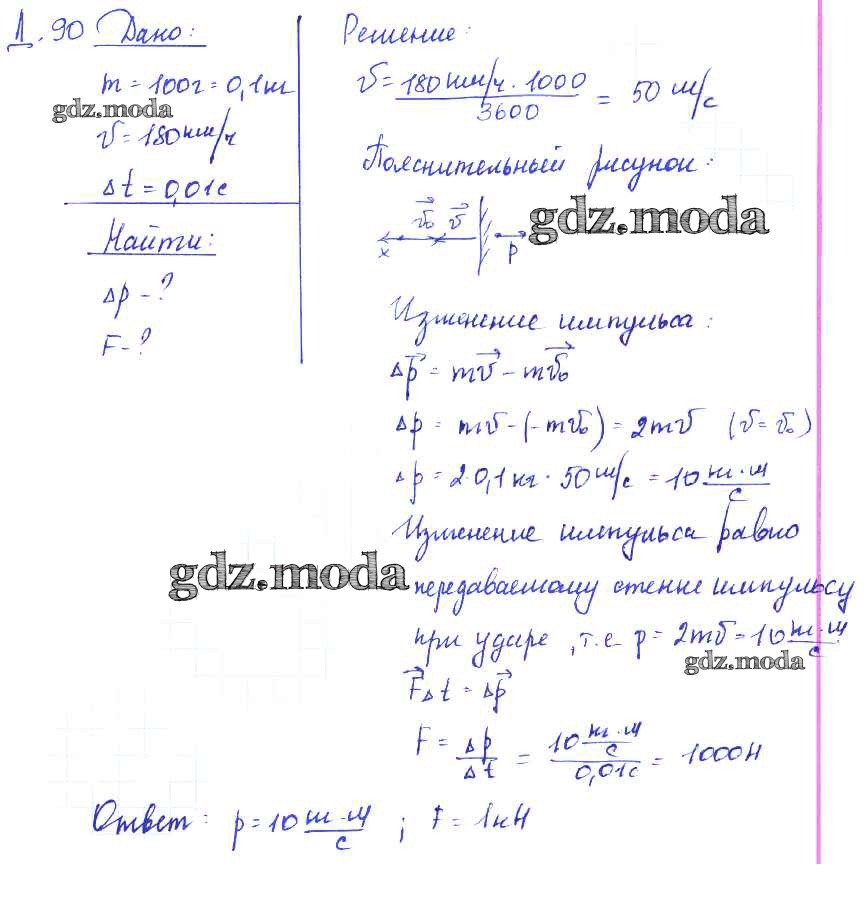 Д. 90 Дано:
m = 100г = 0,1кг
gdz.moda
v = 180 км/ч
Δt = 0,01с
Найти:
Δp - ?
F - ?
Решение:
v = 180 км/ч · 1000 / 3600 = 50 м/с
Пояснительный рисунок:
v₀ v
gdz.moda
x p
Изменение импульса:
Δp = mv - mv₀
Δp = mv - (-mv₀) = 2mv (v = v₀)
Δp = 2·0,1 кг · 50 м/с = 10 кг·м/с
Изменение импульса равно
gdz.moda
передаваемому стенке импульсу
при ударе, т.е p = 2mv = 10 кг·м/с
gdz.moda
FΔt = Δp
F = Δp/Δt = 10 кг·м/с / 0,01с = 1000Н
Ответ: p = 10 кг·м/с ; F = 1кН